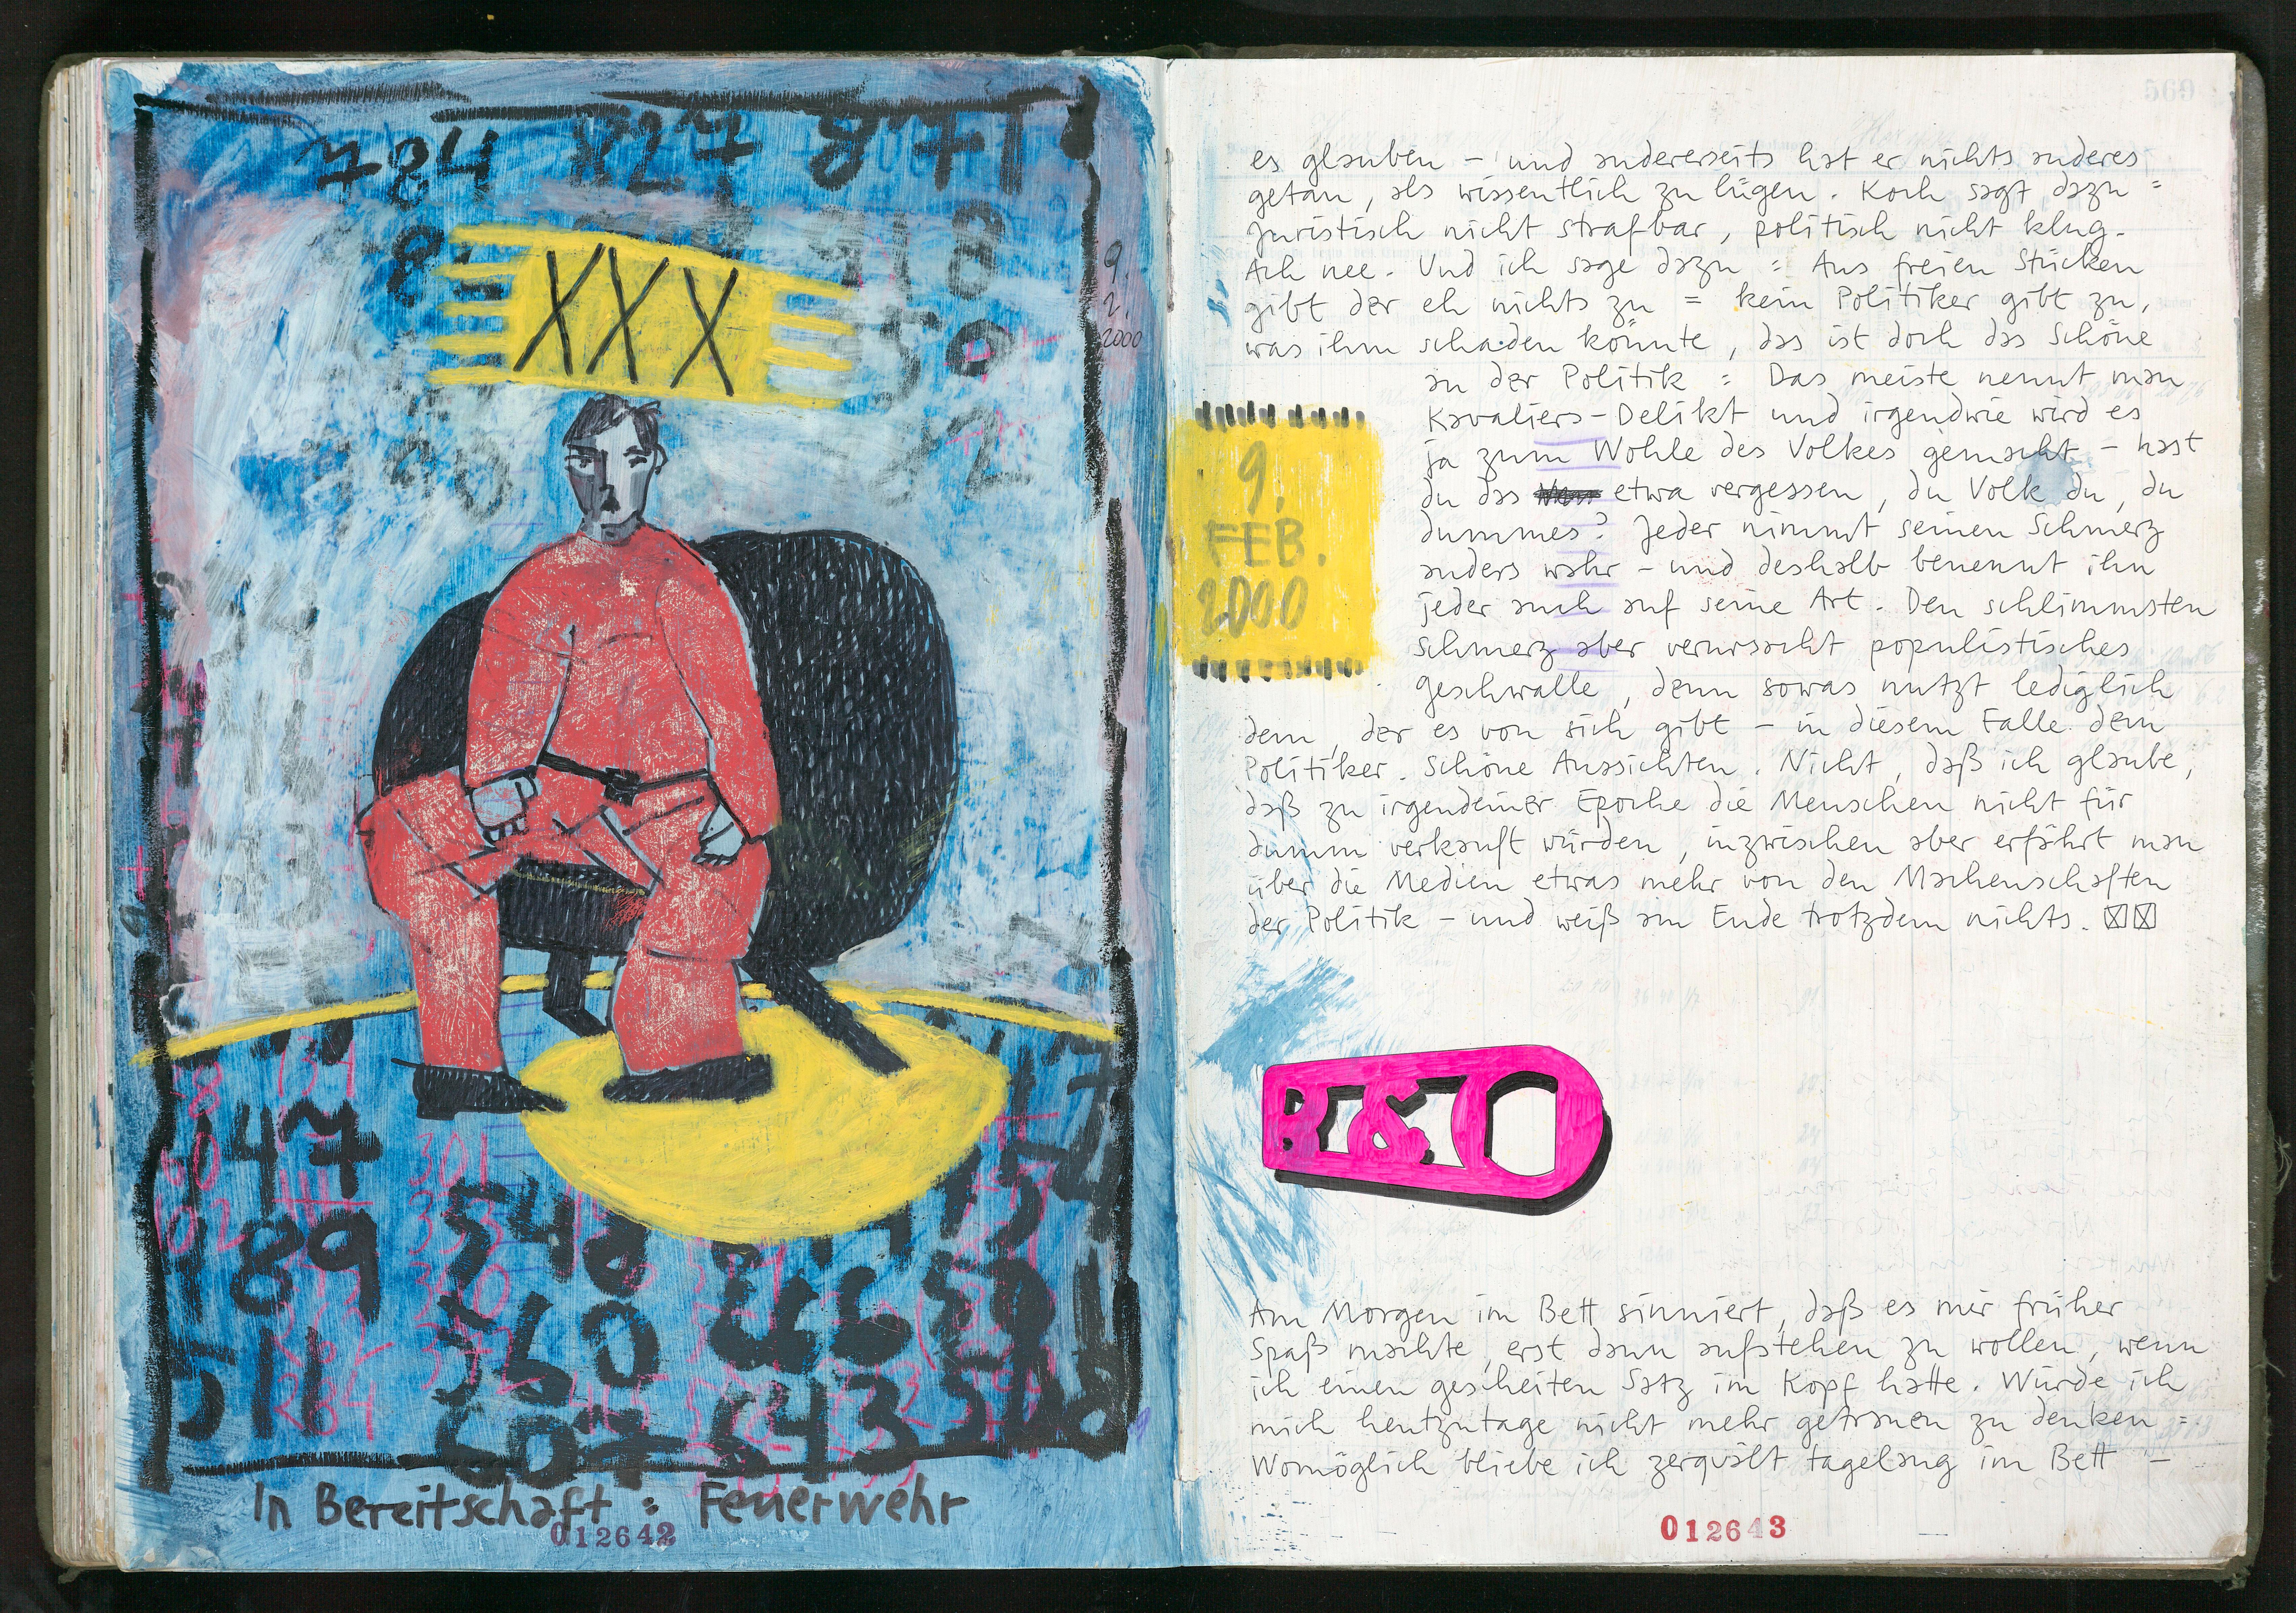 XXX
9.
2.
2000
47
89
511
548
360
607
643
508
In Bereitschaft : Feuerwehr
012642
569
es glauben – und andererseits hat er nichts anderes
getan, als wissentlich zu lügen. Koch sagt dazu =
juristisch nicht strafbar, politisch nicht klug.
Ach nee. Und ich sage dazu : Aus freien Stücken
gibt der eh nichts zu = kein Politiker gibt zu,
was ihm schaden könnte, das ist doch das Schöne
an der Politik : Das meiste nennt man
Kavaliers-Delikt und irgendwie wird es
ja zum Wohle des Volkes gemacht – hast
du das etwa vergessen, du Volk du, du
dummes? Jeder nimmt seinen Schmerz
anders wahr – und deshalb benennt ihn
jeder auch auf seine Art. Den schlimmsten
Schmerz aber verursacht populistisches
Geschwalle, denn sowas nutzt lediglich
dem, der es von sich gibt – in diesem Falle dem
Politiker. Schöne Aussichten. Nicht, daß ich glaube,
daß zu irgendeiner Epoche die Menschen nicht für
dumm verkauft würden, inzwischen aber erfährt man
über die Medien etwas mehr von den Machenschaften
der Politik – und weiß am Ende trotzdem nichts.
9.
FEB.
2000
Am Morgen im Bett sinniert, daß es mir früher
Spaß machte, erst dann aufstehen zu wollen, wenn
ich einen gescheiten Satz im Kopf hatte. Würde ich
mich heutzutage nicht mehr getrauen zu denken =
Womöglich bliebe ich zerquält tagelang im Bett –
012643